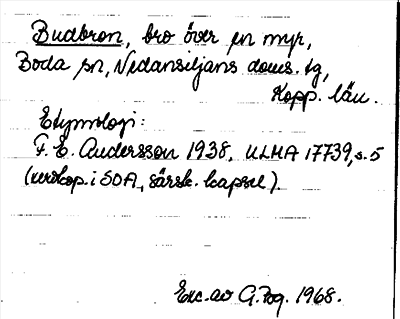 Budbron, bro över en myr,
Boda sn, Nedansiljans doms. tg,
Kopp. län.
Etymologi:
F. E. Andersson 1938, ULMA 17739, s. 5
(xerokop. i SOA, särsk. kapsel).
Exc. av G. Pog. 1968.